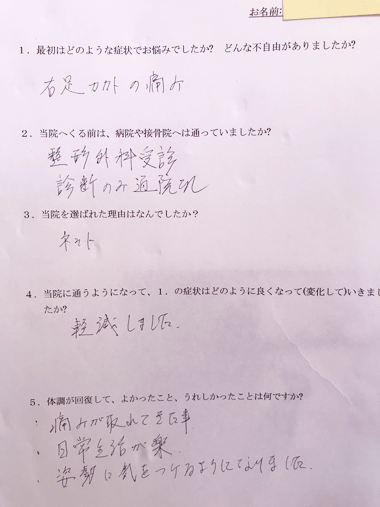 お名前:
1．最初はどのような症状でお悩みでしたか？ どんな不自由がありましたか？
右足カカトの痛み
2．当院へくる前は、病院や接骨院へは通っていましたか？
整形外科受診
診断のみ通院なし
3．当院を選ばれた理由はなんでしたか？
ネット
4．当院に通うようになって、1．の症状はどのように良くなって(変化して)いきまし
たか？
軽減しました．
5．体調が回復して、よかったこと、うれしかったことは何ですか？
・痛みが取れてきた事
・日常生活が楽．
・姿勢に気をつけるようになりました．